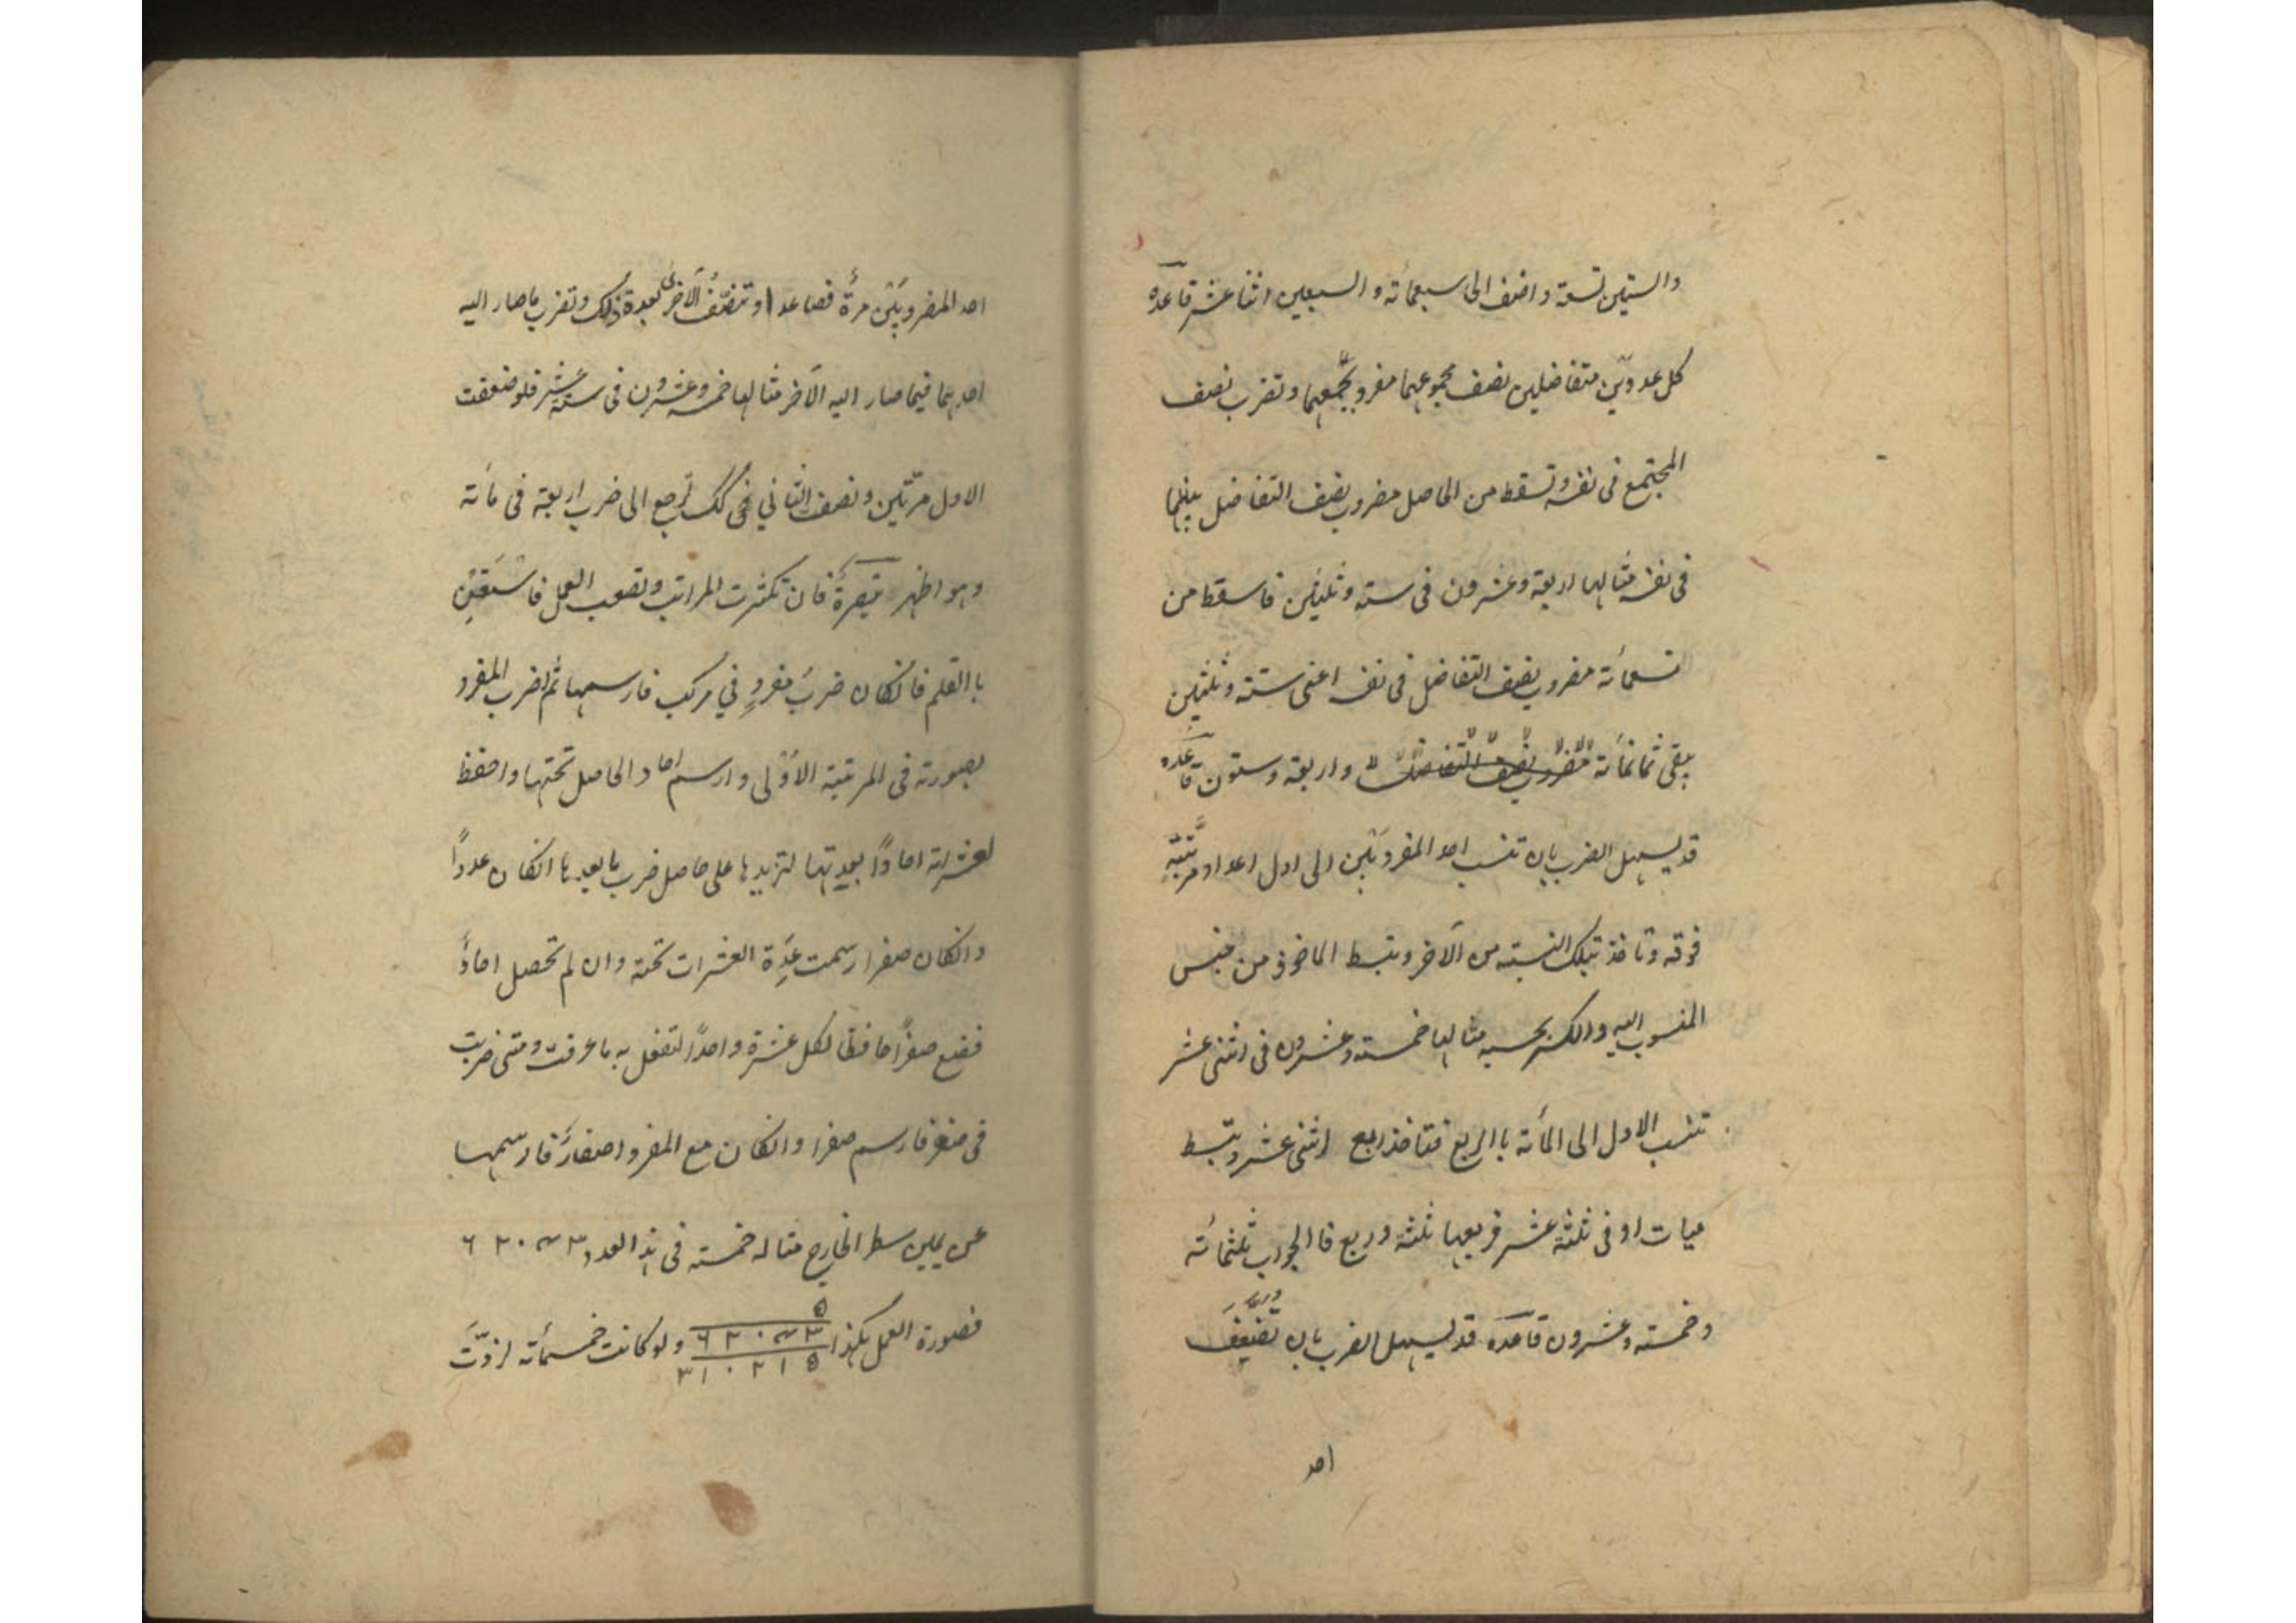 والستين تسعة واضف الى سبعمائة والسبعين اثنا عشر قاعدة
كل عددين متفاضلين نصف مجموعهما مفرد تجمعهما وتضرب نصف
المجتمع فى نفسه وتسقط من الحاصل مضروب نصف التفاضل بينهما
فى نفسه مثالها اربعة وعشرون فى ستة وثلثين فاسقط من
تسعمائة مضروب نصف التفاضل فى نفسه اعنى ستة وثلثين
يبقى ثمانمائة مضروب نصف التفاضل واربعة وستون قاعدة
قد يسهل الضرب بان تنسب احد المضروبين الى اول اعداد مرتبة
فوقه وتاخذ بتلك النسبة من الآخر وتبسط الماخوذ من جنس
المنسوب اليه والكسر بحسبه مثالها خمسة وعشرون فى اثنى عشر
تنسب الاول الى المأئة باالربع فتاخذ ربع اثنى عشر وتبسط
ميات او فى ثلثة عشر فربعها ثلثة وربع فاالجواب ثلثمائة
وخمسة وعشرون قاعدة قد يسهل الضرب بان تضعف
احد
احد المضروبين مرة فصاعدا وتنصف الآخر بعدة ذلك وتضرب ما صار اليه
احدهما فيما صار اليه الآخر مثالها خمسة وعشرون فى ستة عشر فلو ضعفت
الاول مرتين ونصفت الثاني كك لرجع الى ضرب اربعة فى مأئة
وهو اظهر تبصرة فان تكثرت المراتب وتصعب العمل فاستعن
باالقلم فانكان ضرب مفرد في مركب فارسمها ثم اضرب المفرد
بصورته فى المرتبة الاولى وارسم احاد الحاصل تحتها واحفظ
لعشراته احادا بعدتها لتزيدها على حاصل ضرب ما بعدها انكان عددا
وانكان صفرا رسمت عدة العشرات تحته وان لم تحصل احادا
فضع صفرا حافظا لكل عشرة واحدا لتفعل به ما عرفت ومتى ضربت
فى صفر فارسم صفرا وانكان مع المفرد اصفار فارسمها
عن يمين سطر الخارج مثاله خمسة فى هذا العدد ٦٢٠۴٣
فصورة العمل هكذا ۵ ٦٢٠۴٣ ٣١٠٢١۵ ولو كانت خمسمأئة لزدت